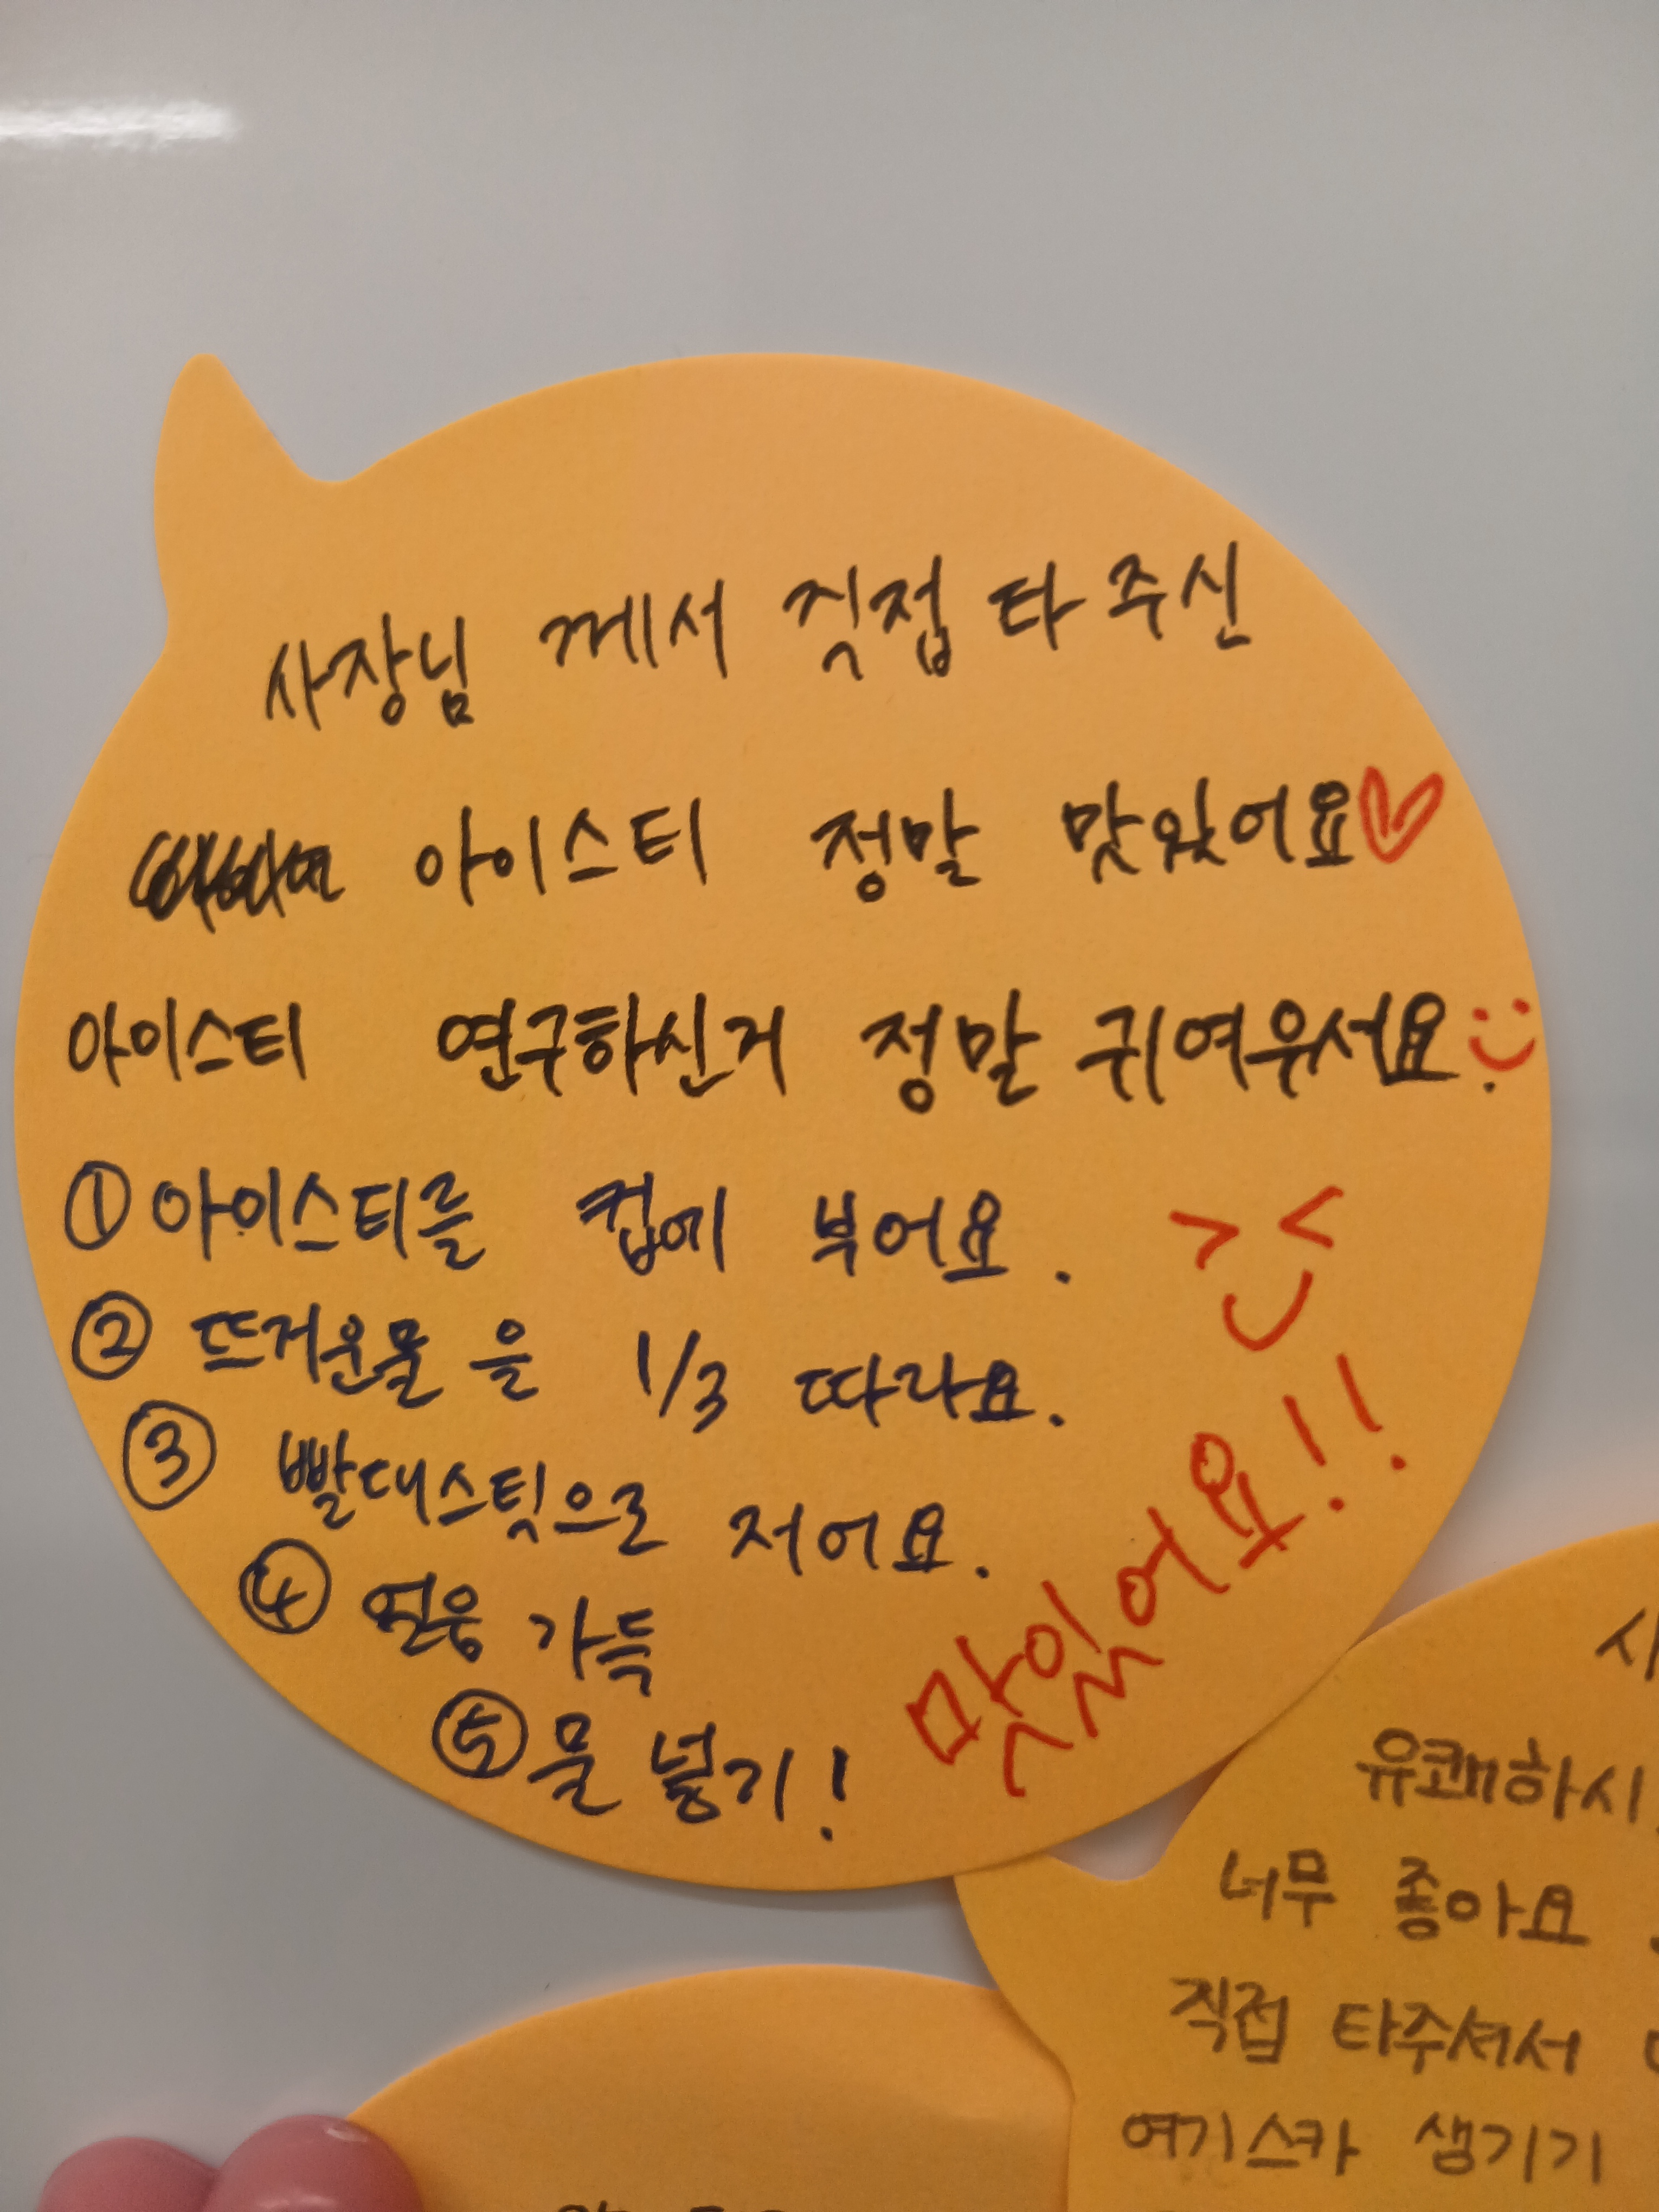 사장님 께서 직접 타 주신
아이스티 정말 맛있어요♡
아이스티 연구하신거 정말 귀여우서요.
① 아이스티를 컵에 부어요.
② 뜨거운물 을 1/3 따라요.
③ 빨대스틱으로 저어요.
④ 얼음 가득
⑤ 물 넣기!
맛있어요!!
유쾌하시
너무 좋아요
직접 타주셔서
여기스카 생기기